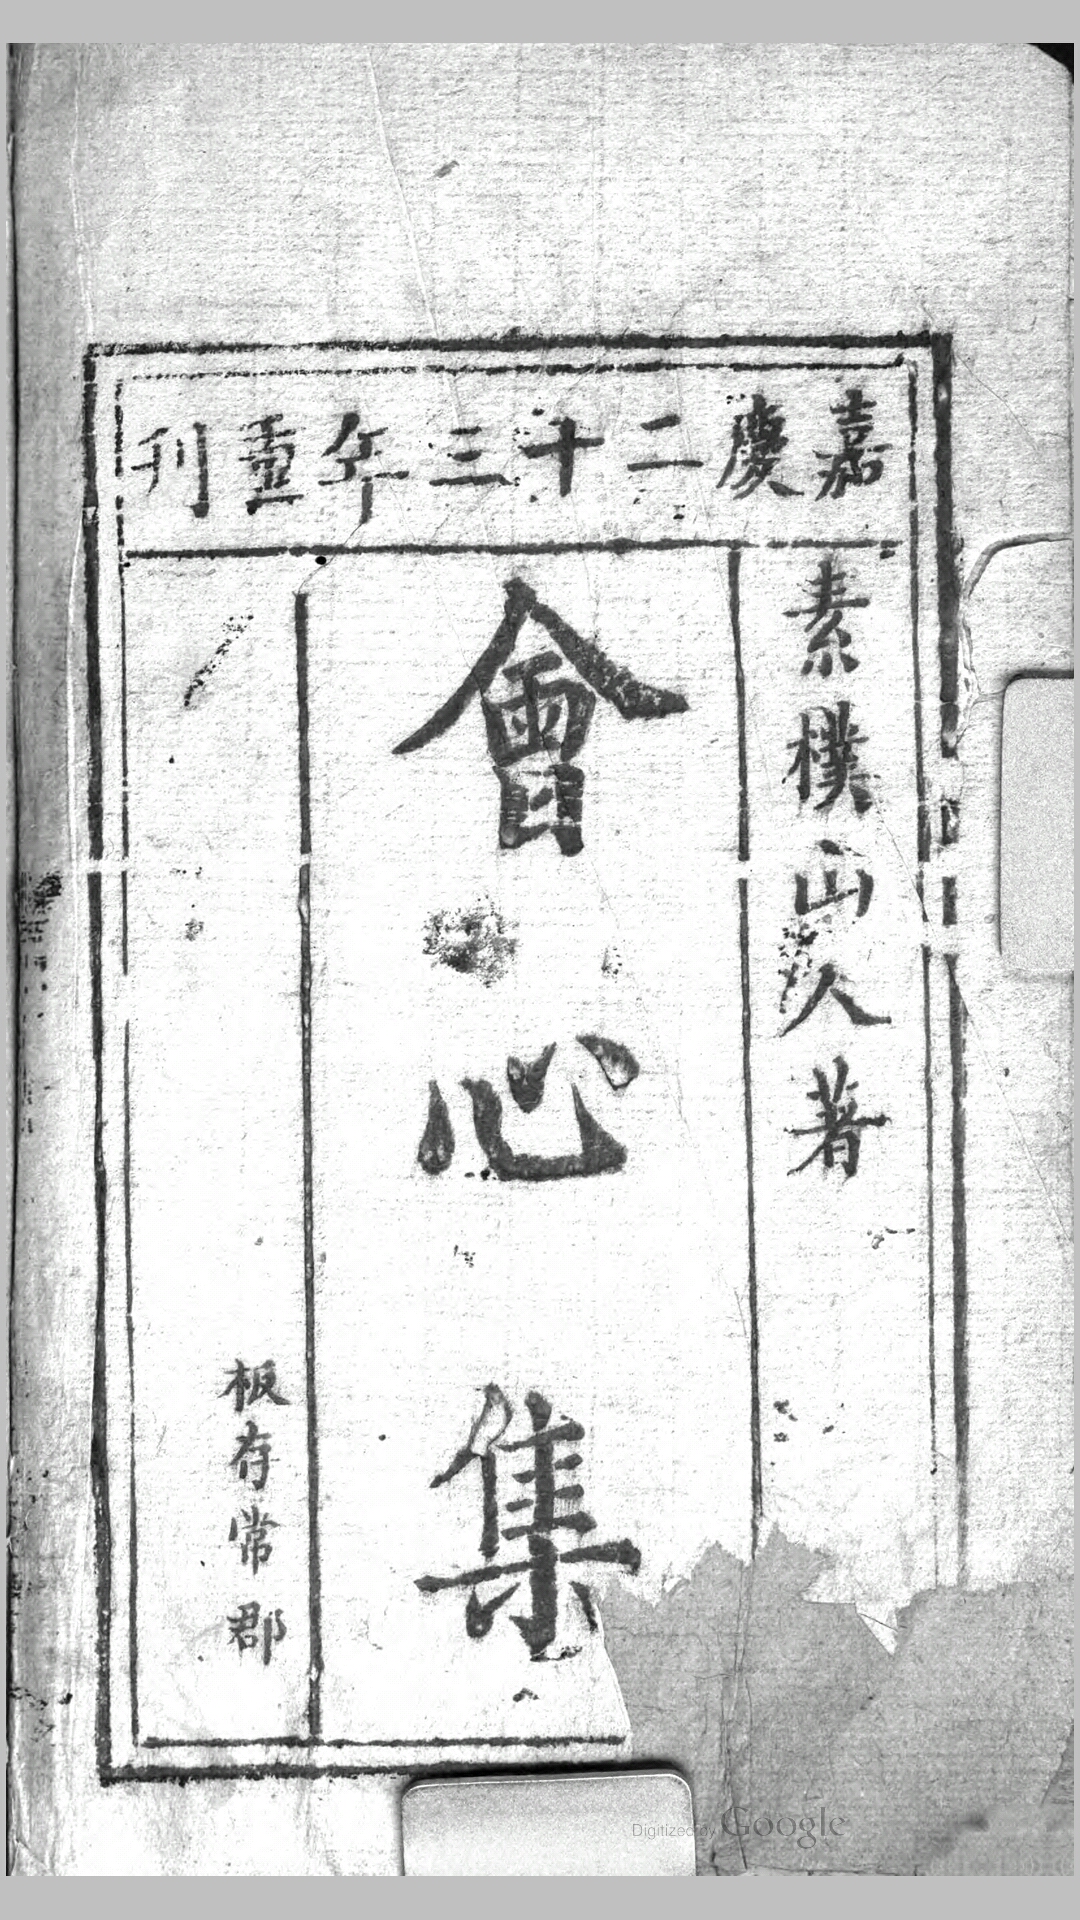 嘉慶二十三年重刊
素樸山人著
會心集
板存常郡
Digitized by Google